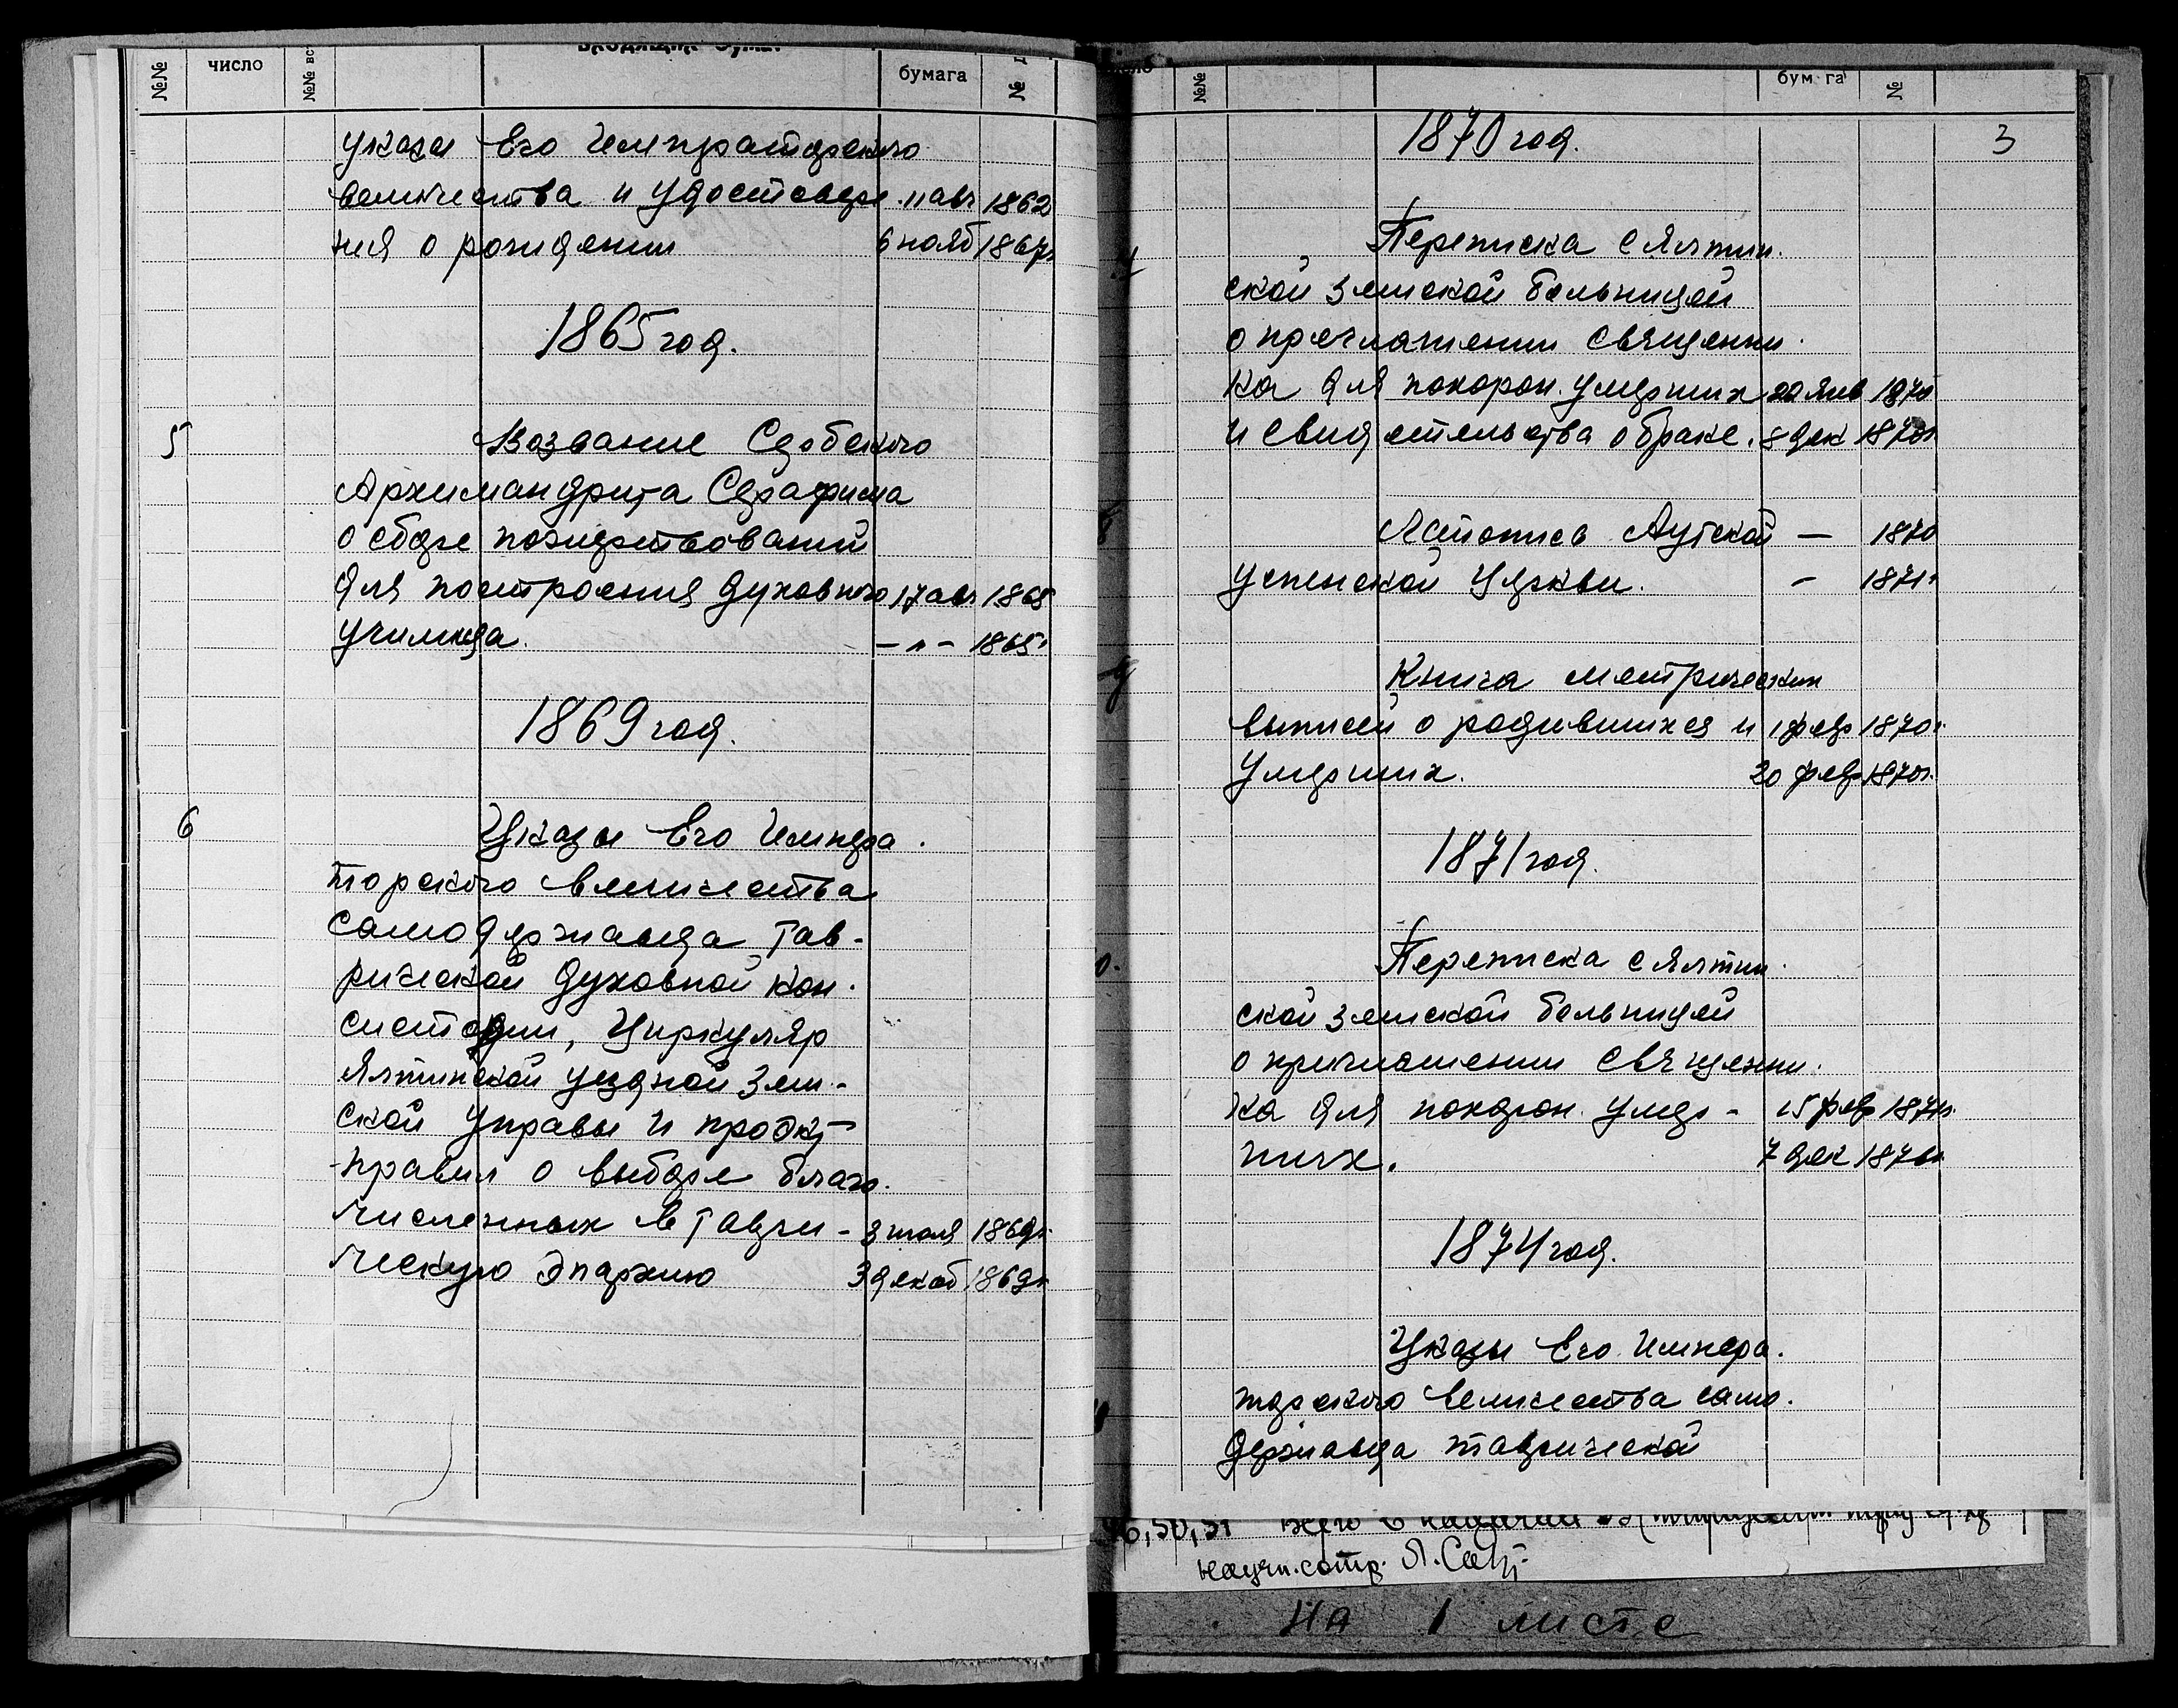 №№ число №№ вс входящих бумаг бумага №
указы Его Импраторского
величества и удостовере 11 авг 1862
ния о рождении 6 нояб 1867г
1865 год.
5 Воззвание Сербского
Архимандрита Серафима
о сборе пожертвований
для построения духовного 17 авг 1865
училища. — " — 1865г
1869 год.
6 Указы Его Импера
торского величества
самодержавца Тав-
рической духовной кон-
систории, Циркуляр
Ялтинской уездной Зем-
ской управы и проэкт
правил о выборе благо-
численных в Таври- 3 июля 1869г.
ческую Эпархию 3 декаб 1869г
№№ бум га №
3
1870 год.
Переписка с Ялтин-
ской земской больницей
о преглашении священни-
ка для похорон умерших 22 янв 1870
и свидетельства о браке. 8 дек 1870г.
Летопись Аутской — 1870
успенской Церкви. — 1871г
9 Книга метрических
выписей о родившихся и 1 февр 1870г
умерших. 20 февр 1870г.
1871 год.
0. Переписка с Ялтин-
ской земской больницей
о приглашении священни-
ка для похорон умер- 15 февр 1871г.
ших. 7 дек 1871г
1874 год.
Указы Его Импера-
торского величества само-
державца таврической
научн. сотр.
на 1 листе